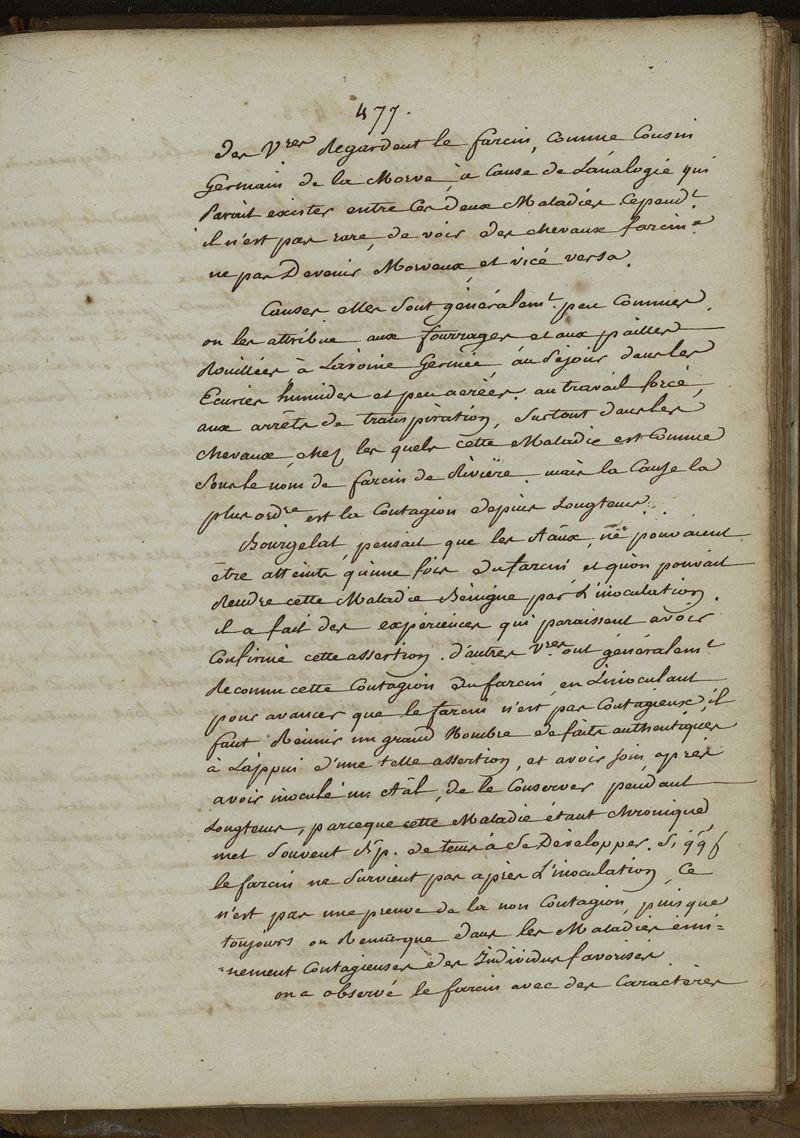 477.
des V.res Regardent le farcin, comme Cousin
Germain de la Morve, à Cause de Lanalogie qui
Parait exister entre Ces deux Maladies Cepend.t
il n'est pas rare, de voir des chevaux farcin.x
ne pas Devenir Morveux, et vicé versa.
Causes elles Sont généralem.t peu Connues,
on les attribue aux fourrages et aux pailles
Rouillées à Lavoine Germée, áu Séjour dans les
Ecuries humides et peu aérées. au travail forcé,
aux arrêts de transpiration, Surtout dans les
chevaux, chez les quels cette Maladie est Connue
Sous le nom de farcin de Rivière. mais la Cause la
plus ord.re est la Contagion depuis Longtems.
Bourgelat, pensait que les Aãux, ne pouvaient
être atteints qu'une fois du farcin, et qu'on pouvait
Rendre cette Maladie Bénigne par L'inoculation.
il a fait des expériences qui paraissent avoir
Confirmé cette assertion. d'autres V.res ont généralem.t
Reconnu cette Contagion du farcin, en Linoculant
pour avancer que le farcin n'est pas Contagieux, il
faut Réunir un grand Nombre de faits authentiques
à Lappui d'une telle assertion, et avoir soin, après
avoir inoculé un Aãl, de le Conserver pendant
Longtems, parceque cette Maladie étant chronique
met Souvent B.p. de tems à Se Développer. Si qqf
le farcin ne Survient pas après L'inoculation, Ce
n'est pas une preuve de la non Contagion, puisque
toujours on Remarque dans les Maladies émi=
=nement Contagieuses des Individus favorisés
on a observé le farcin avec des Caractères